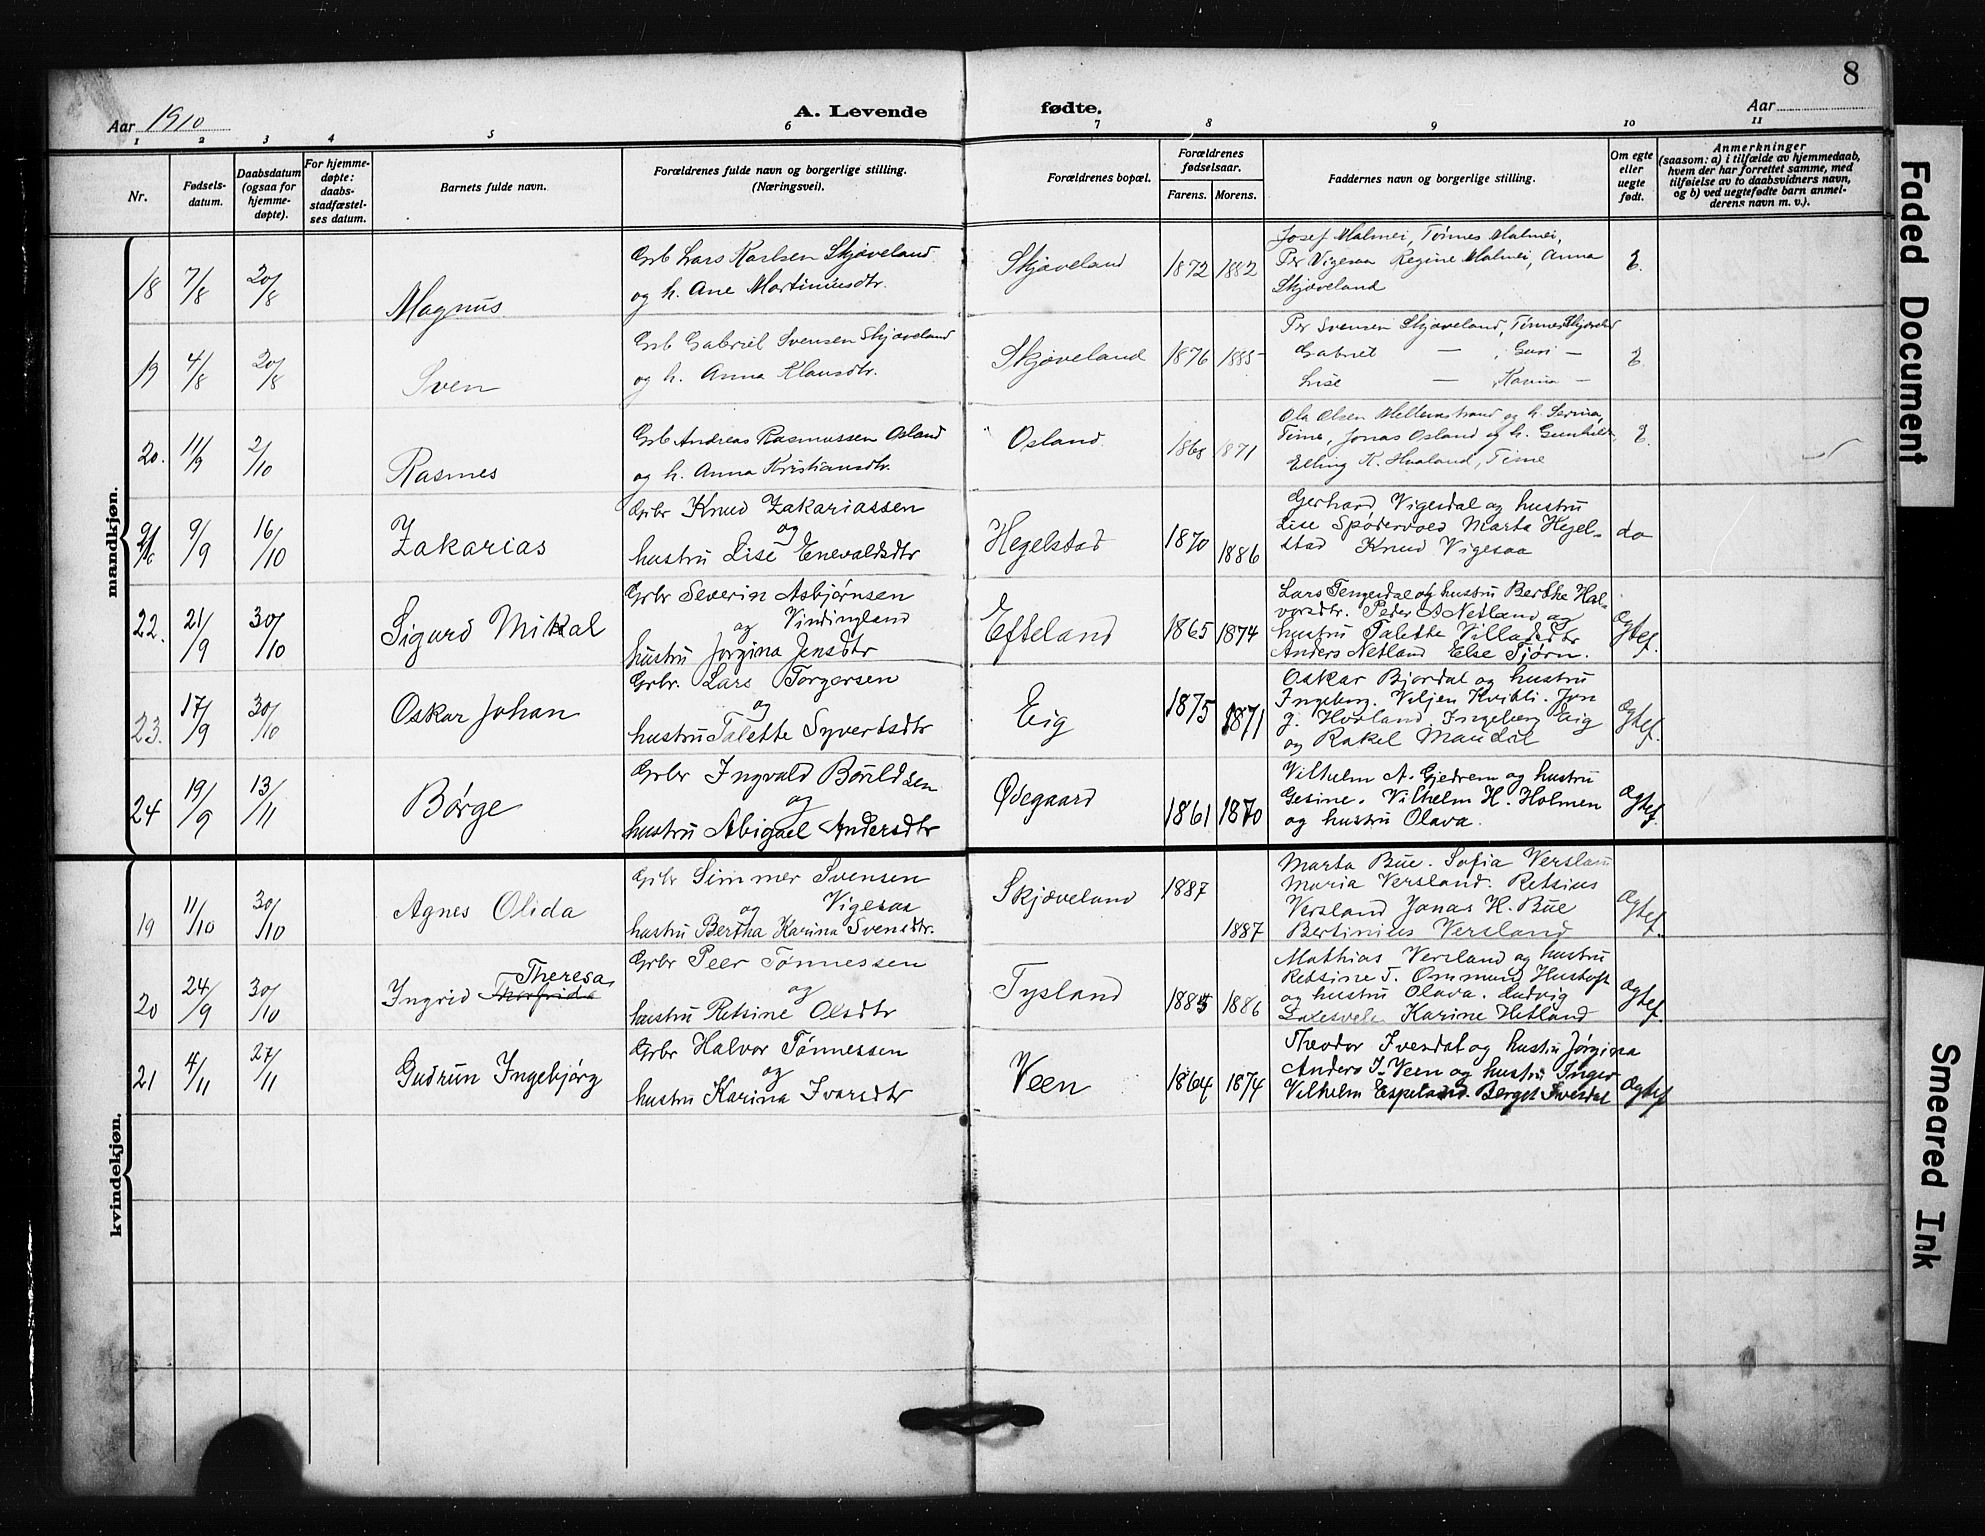 8
Aar 1910
A. Levende fødte.
Aar
1 2 3 4 5 6 7 8 9 10 11
Nr.
Fødsels-
datum.
Daabsdatum
(ogsaa for
hjemme-
døpte).
For hjemme-
døpte:
daabs-
stadfæstel-
ses datum.
Barnets fulde navn.
Forældrenes fulde navn og borgerlige stilling.
(Næringsvei).
Forældrenes bopæl.
Forældrenes
fødselsaar.
Farens. Morens.
Faddernes navn og borgerlige stilling.
Om egte
eller
uegte
født.
Anmerkninger
(saasom: a) i tilfælde av hjemmedaab,
hvem der har forrettet samme, med
tilføielse av to daabsvidners navn,
og b) ved uegtefødte barn anmel-
derens navn m. v.).
mandkjøn.
18 7/8 20/8 Magnus
Grb Lars Karlsen Skjæveland
og h. Ane Martiniusdtr.
Skjæveland 1872 1882
Josef Malmei, Tønnes Malmei,
Per Vigesaa Regine Malmei, Anna
Skjæveland
E.
19 4/8 20/8 Sven
Grb Gabriel Svensen Skjæveland
og h. Anna Klausdtr.
Skjæveland 1876 1885
Per Svensen Skjæveland, Tønnes Skjæveland
Gabriel — , Guri —
Lise — , Karina —
E.
20. 11/9 2/10 Rasmes
Grb Andreas Rasmussen Osland
og h. Anna Kristiansdtr.
Osland 1868 1871
Ola Olsen Mellemstrand og h. Serina,
Time, Jonas Osland og h. Gunhild,
Elling K. Hualand, Time
E.
21 9/9 16/10 Zakarias
Grbr Knud Zakariassen
og
hustru Lise Enevaldsdtr
Hegelstad 1870 1886
Gerhard Vigesdal og hustru
Lise Spødervold Marta Hegel-
stad Knud Vigesaa
do
22. 21/9 30/10 Sigurd Mikal
Grbr Severin Asbjørnsen
og Vindingland
hustru Jorgina Jensdtr
Efteland 1865 1874
Lars Tengesdal og hustru Berthe Hal-
vorsdtr. Peder A Netland og
hustru Talette Villadsdtr
Anders Netland Else Tjørn.
Ægtef.
23. 17/9 30/10 Oskar Johan
Grbr. Lars Torgersen
og
hustru Talette Syvertsdtr
Eig 1875 1871
Oskar Bjordal og hustru
Ingeborg. Viljen Kvibli. Jon
g. Hovland Ingeborg Eig
og Rakel Maudal
Ægtef.
24 19/9 13/11 Børge
Grbr Ingvald Bøuldsen
og
hustru Abigael Andersdtr
Ødegaard 1861 1870
Vilhelm A. Gjedrem og hustru
Gesine. Vilhelm H. Holmen
og hustru Olava.
Ægtef.
kvindekjøn.
19 11/10 30/10 Agnes Olida
Grbr Simmer Svensen
og Vigesaa
hustru Bertha Karina Svensdtr.
Skjæveland 1887 1887
Marta Bue. Sofia Versland
Maria Versland. Retsius
Versland Jonas H. Bue
Bertinius Versland
Ægtef.
20 24/9 30/10 Ingrid Thorfrida Theresa
Grbr Peer Tønnessen
og
hustru Retsine Olsdtr
Tysland 1885 1886
Mathias Versland og hustru
Retsine T. Ommund Hustoft
og hustru Olava. Ludvig
Karine Hetland
Ægtef.
21 4/11 27/11 Gudrun Ingebjørg
Grbr Halvor Tønnessen
og
hustru Karina Ivarsdtr
Veen 1864 1874
Theodor Ivesdal og hustru Jørgina
Anders I. Veen og hustru Inger
Vilhelm Espeland. Berget Ivesdal
Ægtef
Faded Document
Smeared Ink